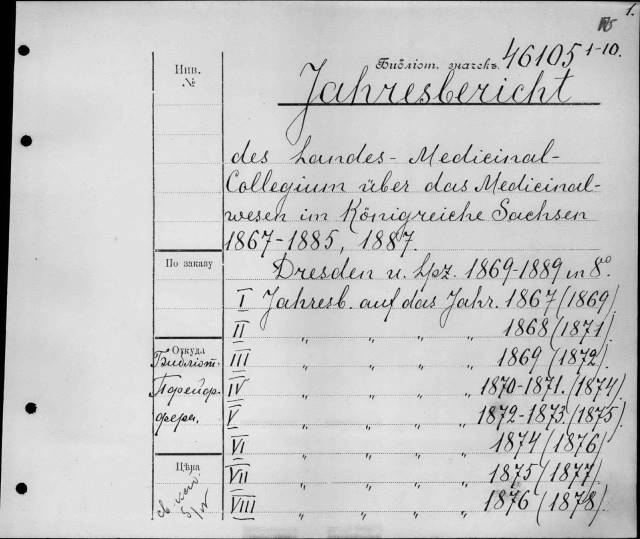 1.
Библіот. значекъ. 46105 1-10.
Инв.
№
Jahresbericht
des Landes-Medicinal-
Collegium über das Medicinal-
wesen im Königreiche Sachsen
1867-1885, 1887.
По заказу
Dresden u. Lpz. 1869-1889 in 8º.
I Jahresb. auf das Jahr. 1867 (1869)
II " " " 1868 (1871)
Откуда
Библіот.
III " " " 1869 (1872)
IV " " " 1870-1871. (1874)
V " " " 1872-1873. (1875)
VI " " " 1874 (1876)
Цѣна
VII " " " 1875 (1877)
VIII " " " 1876 (1878)